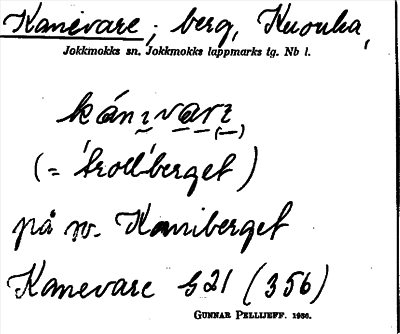 Kanevare; berg, Kuouka,
Jokkmokks sn, Jokkmokks lappmarks tg. Nb l.
kánivari
(= 'trollberget)
på sv. Kaniberget
Kanevare G21 (356)
GUNNAR PELLIJEFF. 1936.